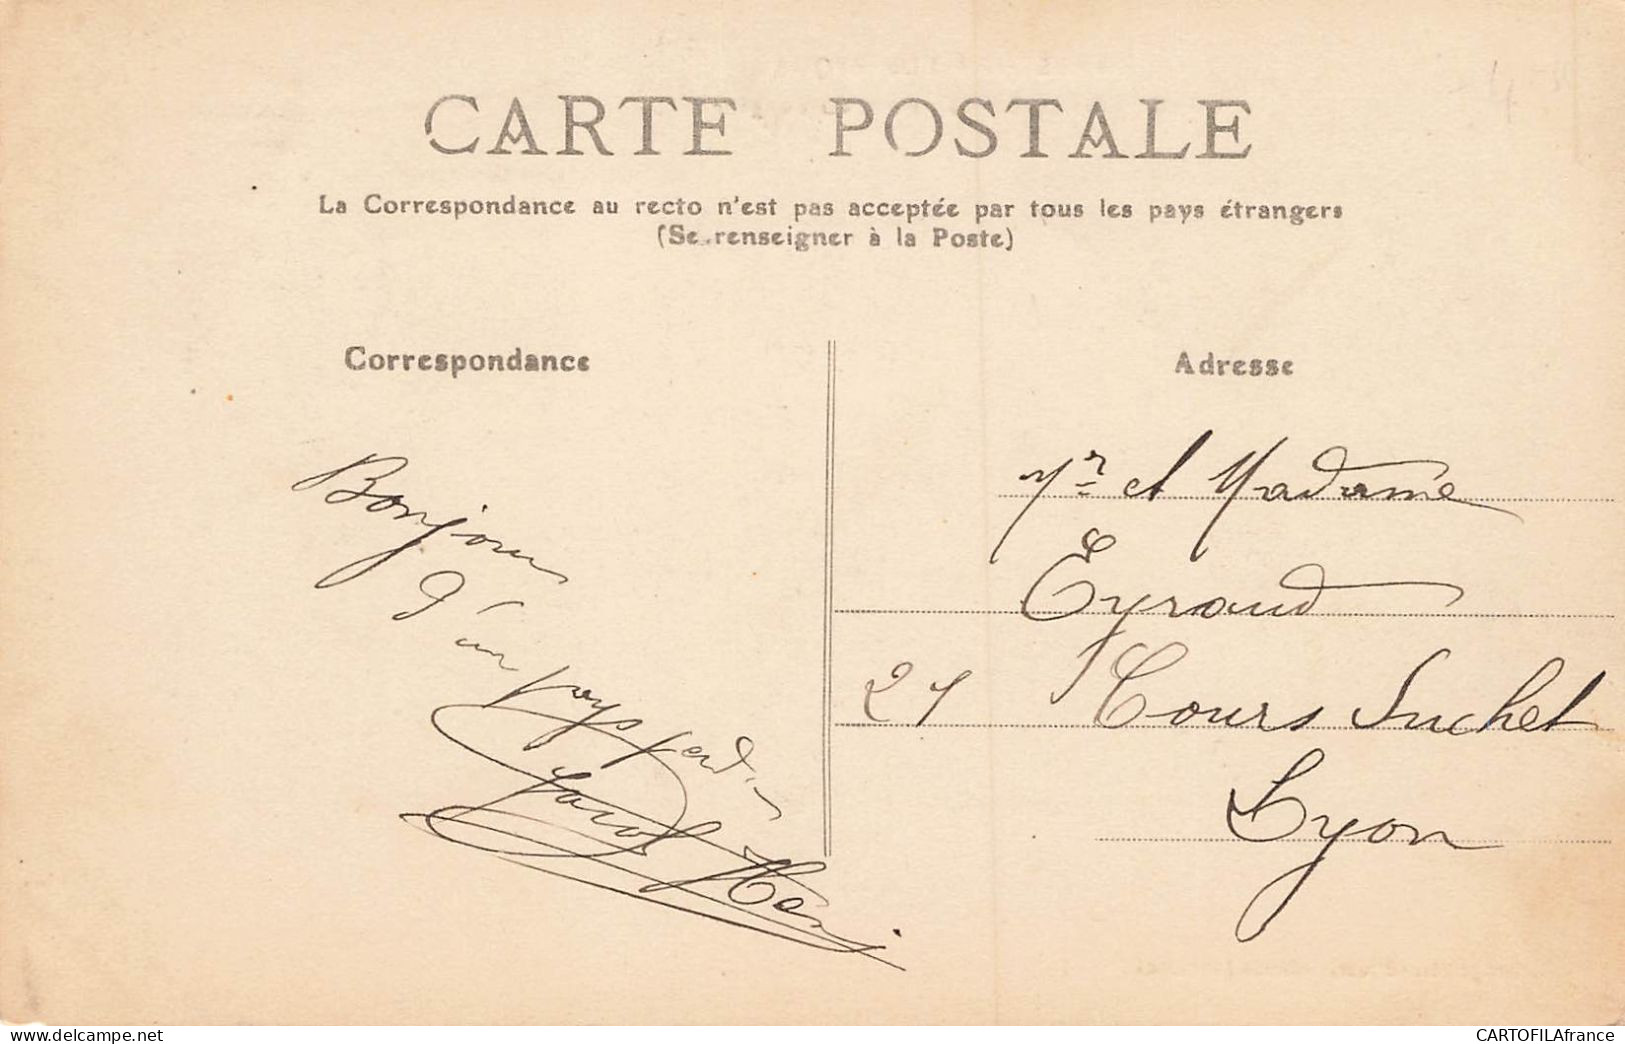 CARTE POSTALE
La Correspondance au recto n'est pas acceptée par tous les pays étrangers
(Se renseigner à la Poste)
Correspondance
Bonjour
d'un pays perdu
Jacob Henri
Adresse
Mr et Madame
Eyraud
21 Cours Suchet
Lyon
www.delcampe.net
CARTOFILAfrance